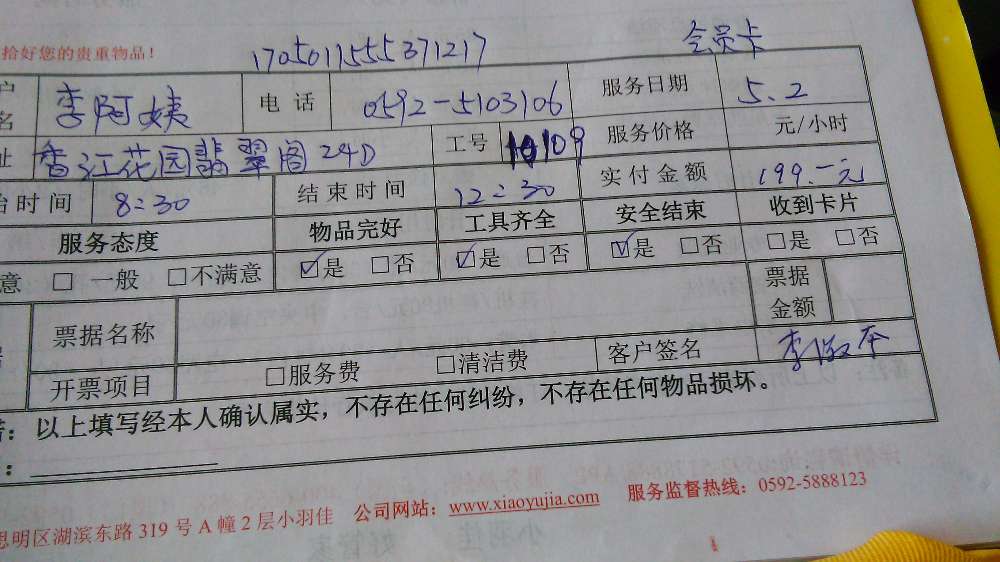 拾好您的贵重物品!
1705011555371217 会员卡
户名 李阿姨 电话 0592-5103106 服务日期 5.2
址 香江花园翡翠阁24D 工号 109 服务价格 元/小时
始时间 8:30 结束时间 12:30 实付金额 199.-元
服务态度 物品完好 工具齐全 安全结束 收到卡片
意 □ 一般 □不满意 ☑是 □否 ☑是 □否 ☑是 □否 □是 □否
票据名称 票据金额
开票项目 □服务费 □清洁费 客户签名 李
: 以上填写经本人确认属实，不存在任何纠纷，不存在任何物品损坏。
:
思明区湖滨东路 319 号 A 幢 2 层小羽佳 公司网站: www.xiaoyujia.com 服务监督热线: 0592-5888123